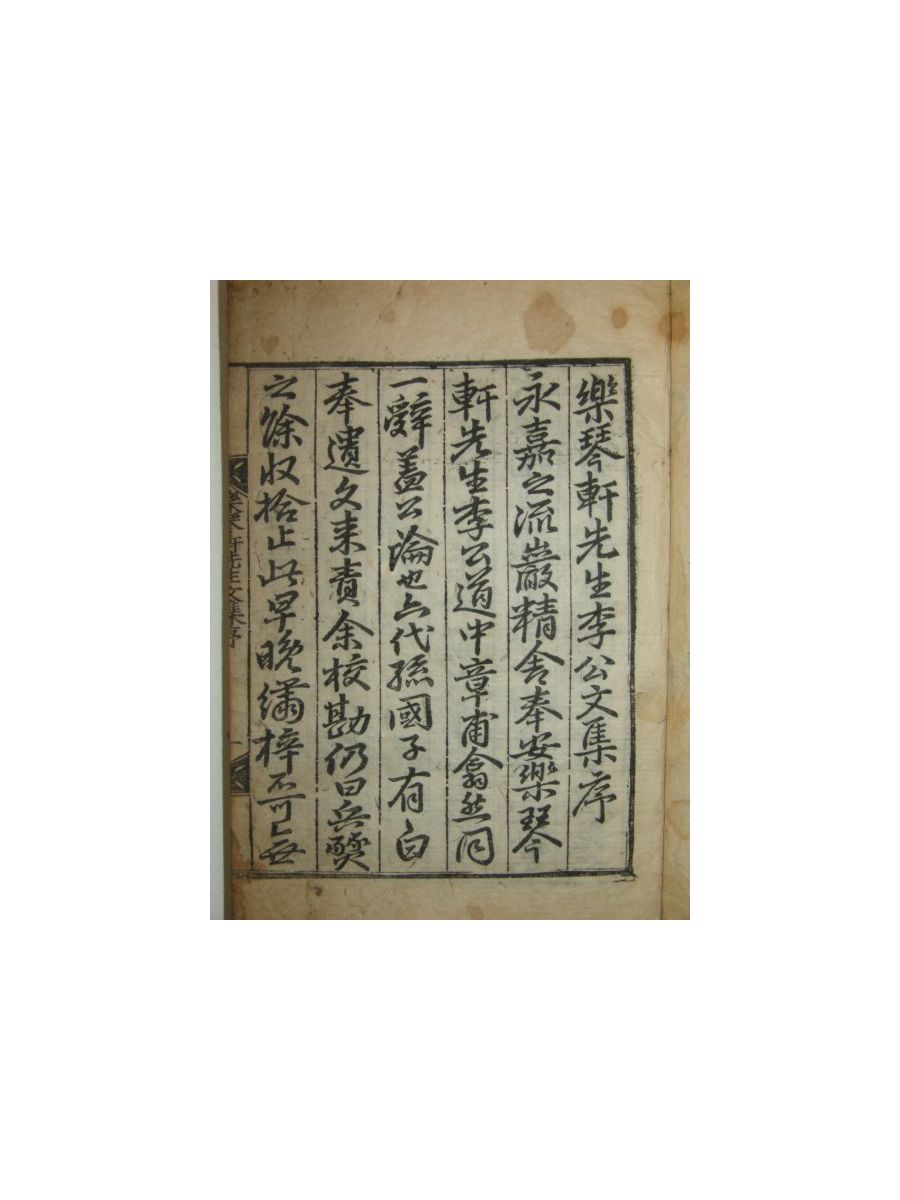 樂琴軒先生李公文集序
永嘉之流巖精舍奉安樂琴
軒先生李公道中章甫翕然同
一辭蓋公論也六代孫國子有白
奉遺文来責余校勘仍曰兵燹
之餘收拾止此早晚繡梓不可無
樂琴軒先生文集序
一